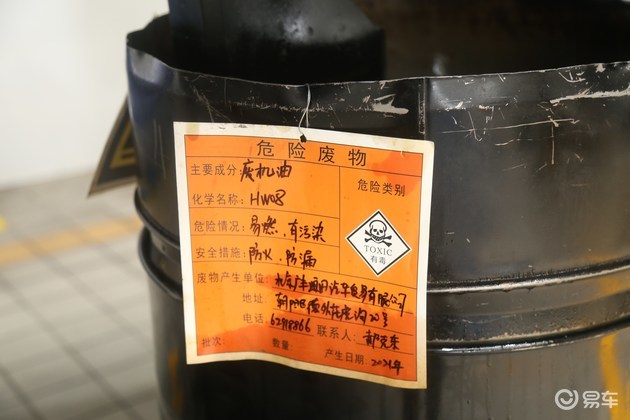 危险废物
主要成分: 废机油
化学名称: HW08
危险类别
危险情况: 易燃、有污染
安全措施: 防火、防漏
TOXIC
有毒
废物产生单位:
汽车贸易有限公司
地址: 20号
电话: 62918866 联系人:
批次: 数量: 产生日期: 2021年
易车